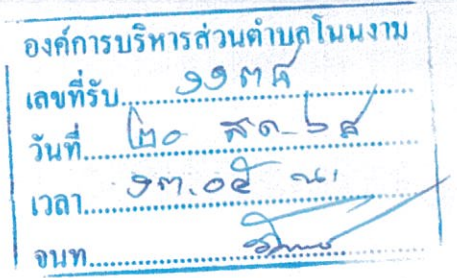 องค์การบริหารส่วนตำบลโนนงาม
เลขที่รับ ๑๑๓๘
วันที่ ๒๐ ส.ค. ๖๘
เวลา ๑๓.๐๕ น.
จนท.